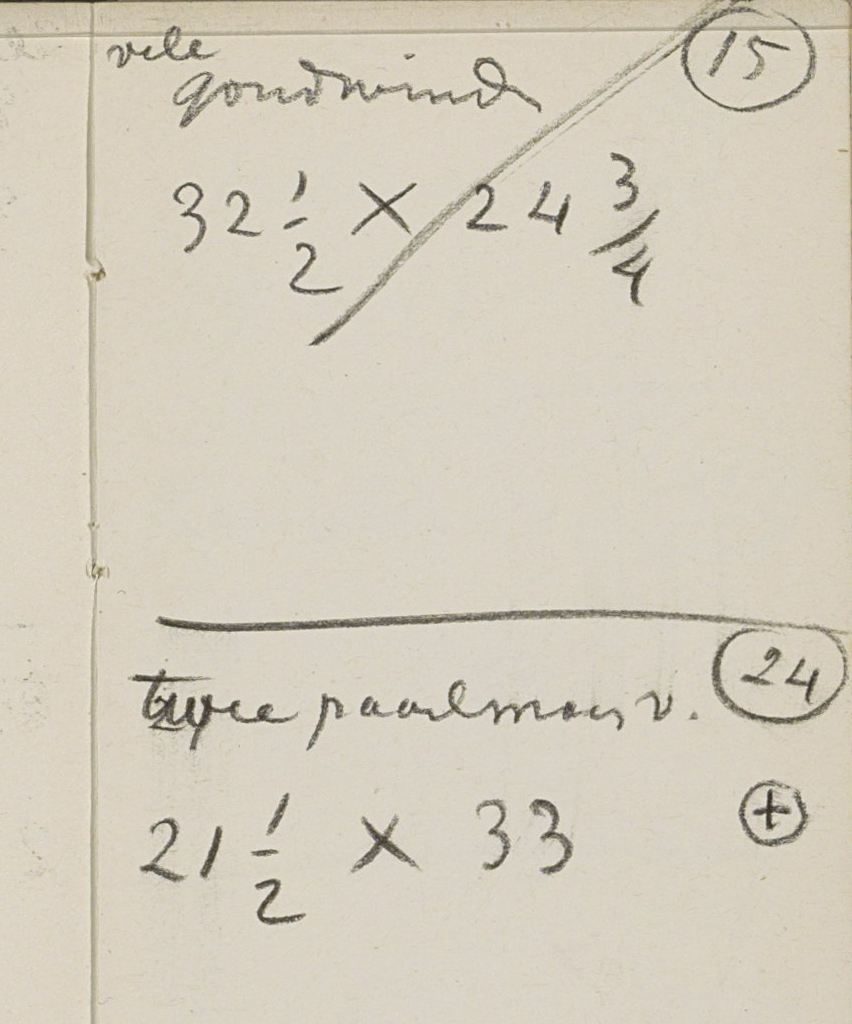 vele 15
goudwinde
32 1/2 × 24 3/4
twee paarlmoer v. 24
21 1/2 × 33 +